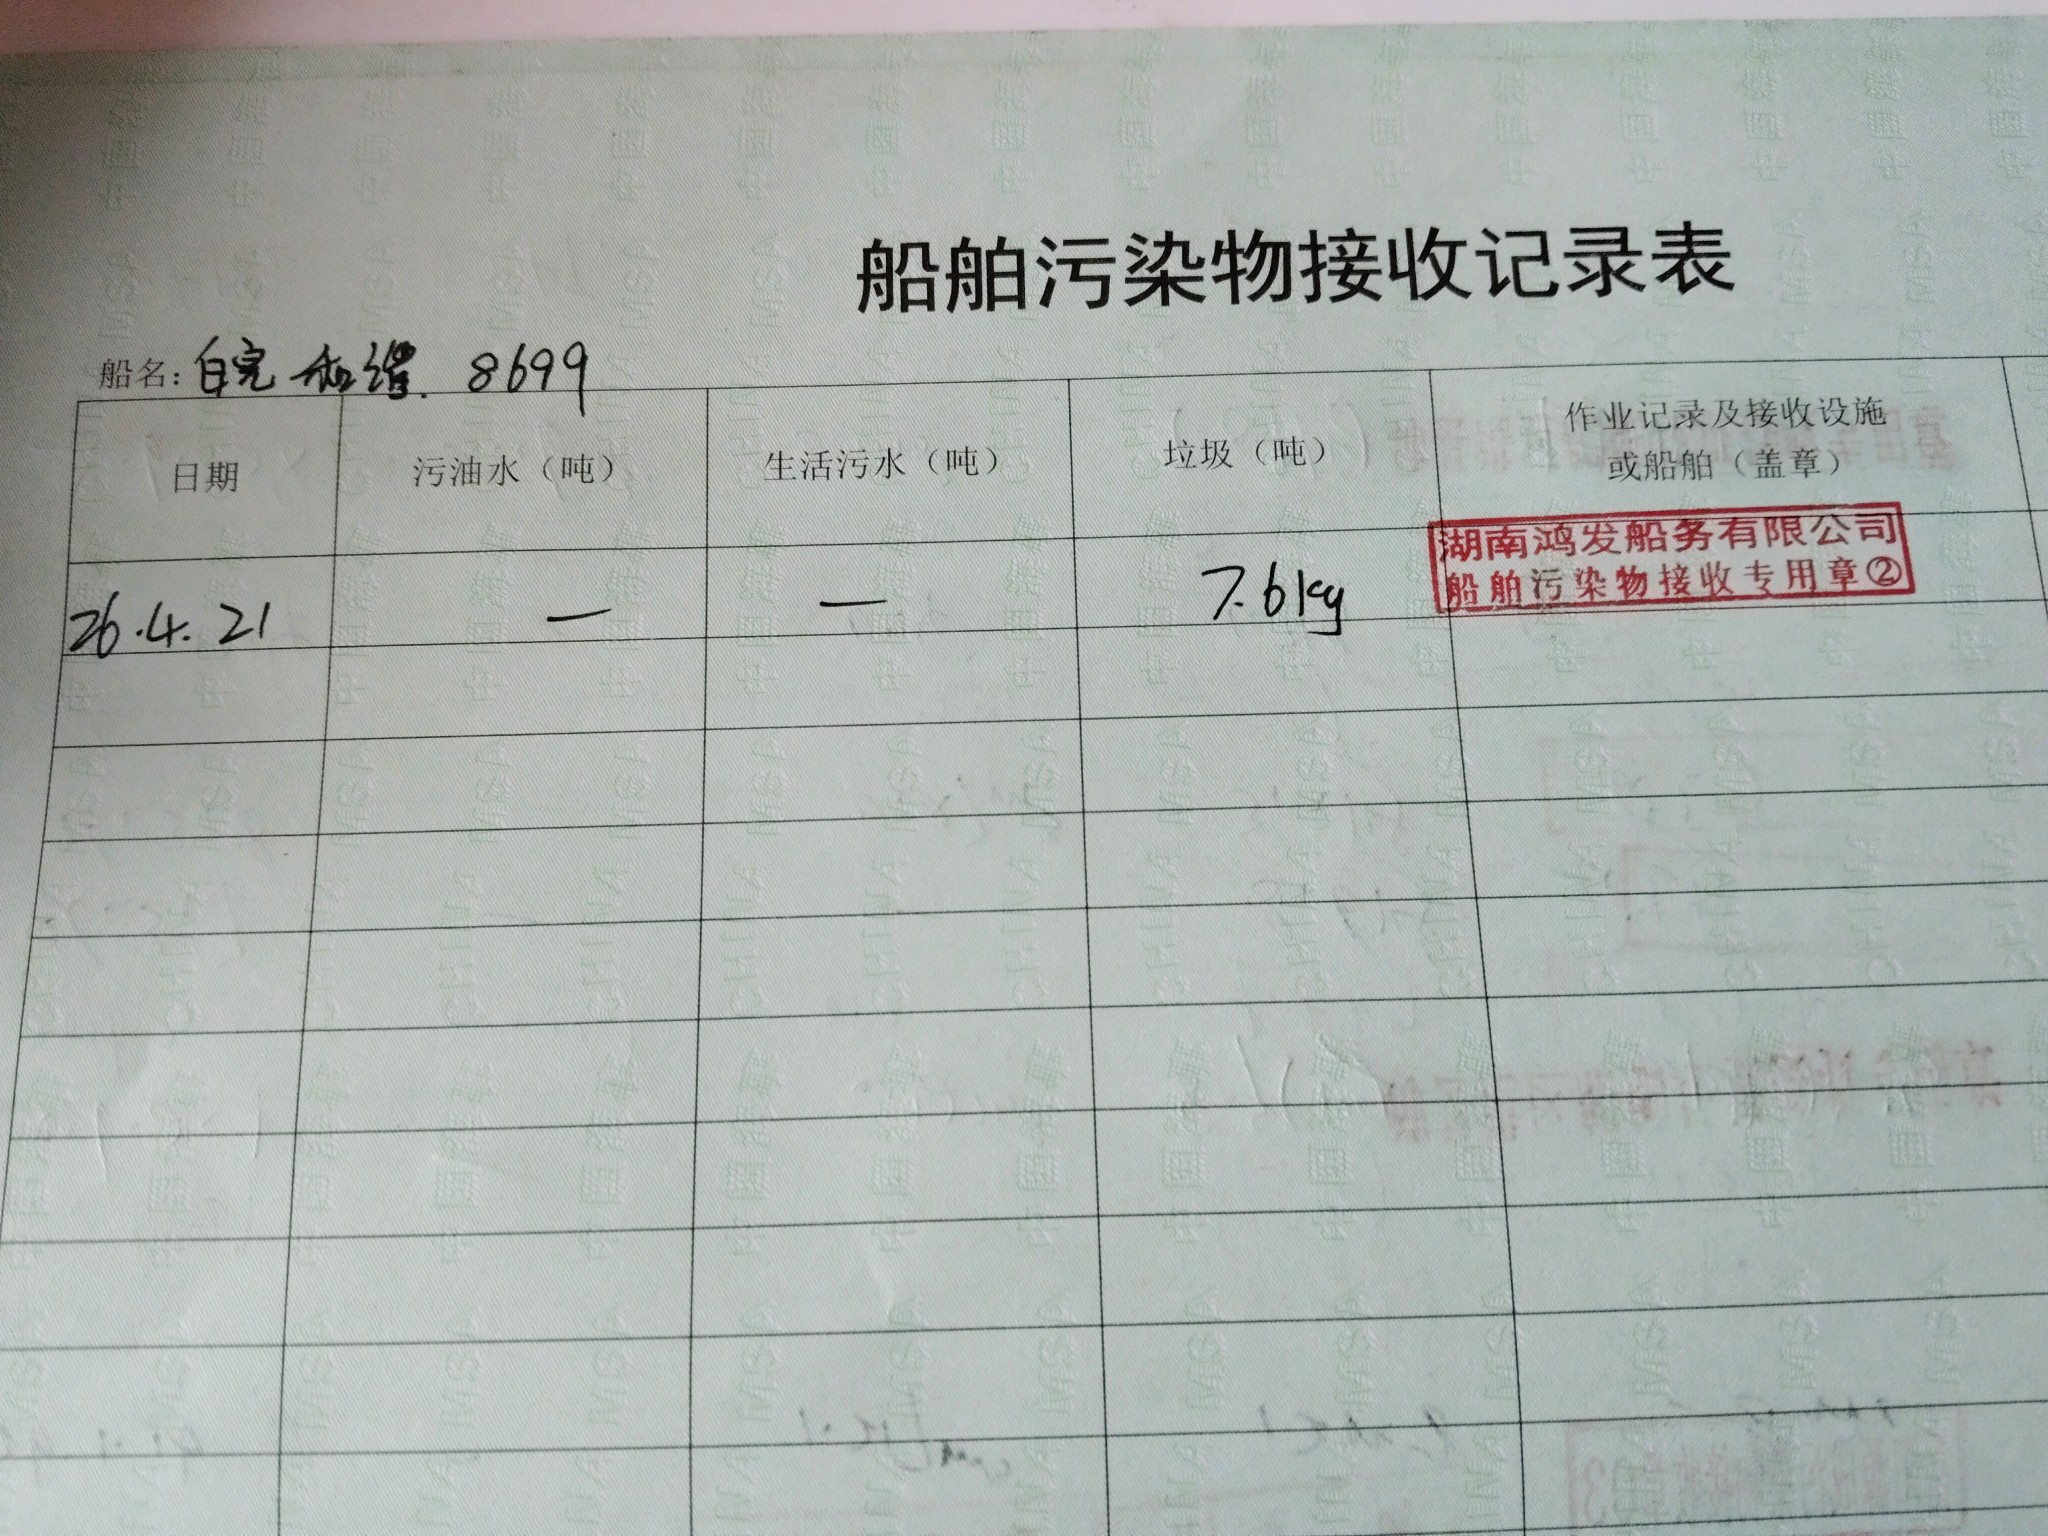 船舶污染物接收记录表
船名: 皖和谐. 8699
日期 污油水（吨） 生活污水（吨） 垃圾（吨） 作业记录及接收设施
或船舶（盖章）
26.4.21 — — 7.6kg
湖南鸿发船务有限公司
船舶污染物接收专用章②